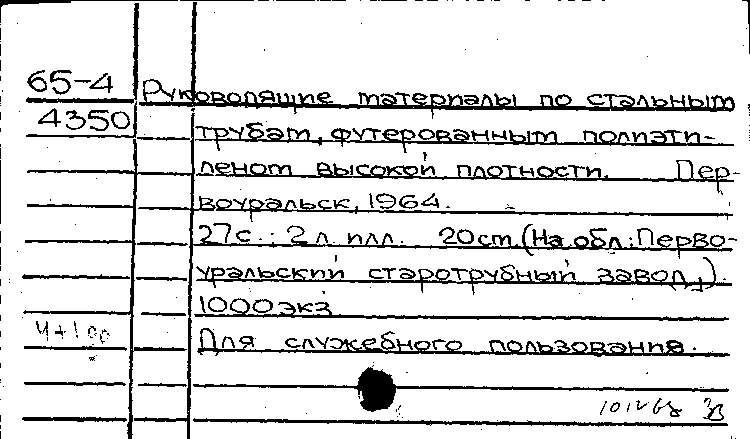 65-4 Руководящие материалы по стальным
4350 трубам, футерованным полиэти-
леном высокой плотности. Пер-
воуральск, 1964.
27с.; 2 л. илл. 20см. (На обл.: Перво-
уральский старотрубный завод.)
1000экз
Для служебного пользования.